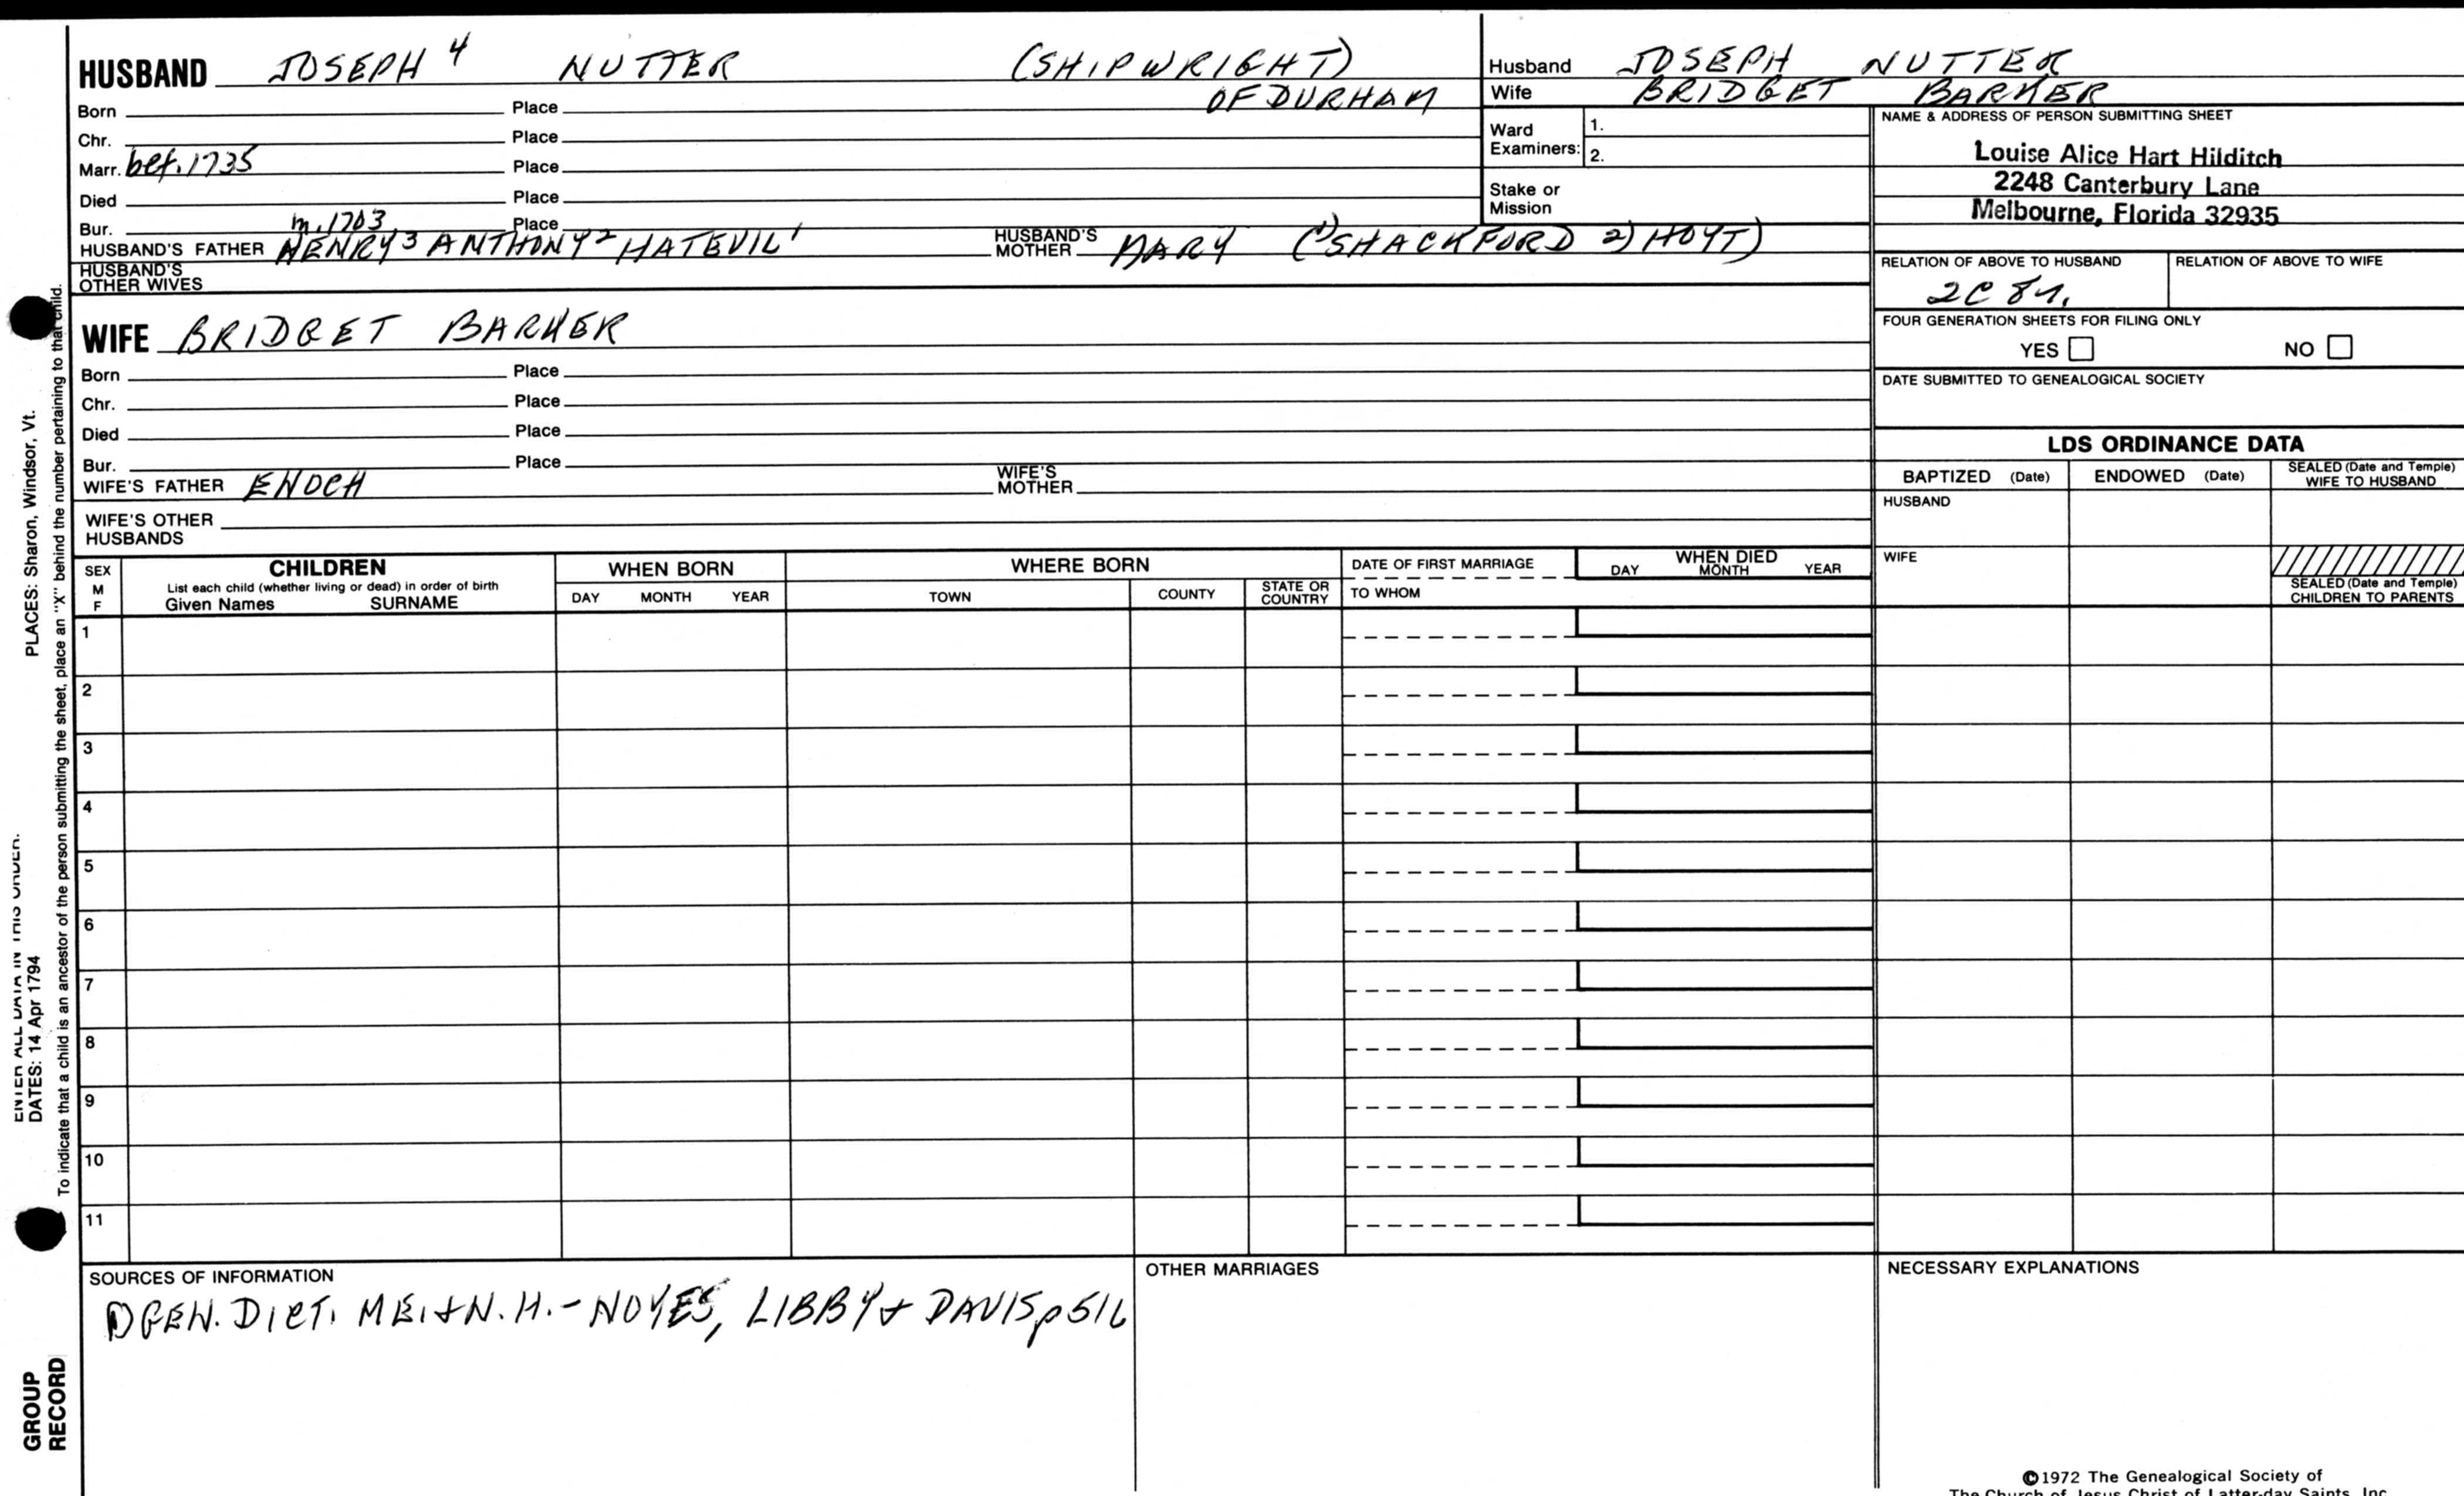 HUSBAND JOSEPH 4 NUTTER (SHIPWRIGHT)
Born Place OF DURHAM
Chr. Place
Marr. bef. 1735 Place
Died Place
Bur. m. 1703 Place
HUSBAND'S FATHER HENRY 3 ANTHONY 2 HATEVIL 1 HUSBAND'S MOTHER MARY (1) SHACKFORD 2) HOYT)
HUSBAND'S OTHER WIVES
WIFE BRIDGET BARKER
Born Place
Chr. Place
Died Place
Bur. Place
WIFE'S FATHER ENOCH WIFE'S MOTHER
WIFE'S OTHER HUSBANDS
Husband JOSEPH NUTTER
Wife BRIDGET BARKER
Ward Examiners: 1.
2.
Stake or Mission
NAME & ADDRESS OF PERSON SUBMITTING SHEET
Louise Alice Hart Hilditch
2248 Canterbury Lane
Melbourne, Florida 32935
RELATION OF ABOVE TO HUSBAND RELATION OF ABOVE TO WIFE
2C 8r.
FOUR GENERATION SHEETS FOR FILING ONLY
YES NO
DATE SUBMITTED TO GENEALOGICAL SOCIETY
LDS ORDINANCE DATA
BAPTIZED (Date) ENDOWED (Date) SEALED (Date and Temple) WIFE TO HUSBAND
HUSBAND
WIFE
SEALED (Date and Temple) CHILDREN TO PARENTS
SEX M F
CHILDREN
List each child (whether living or dead) in order of birth
Given Names SURNAME
WHEN BORN
DAY MONTH YEAR
WHERE BORN
TOWN COUNTY STATE OR COUNTRY
DATE OF FIRST MARRIAGE
TO WHOM
WHEN DIED
DAY MONTH YEAR
1
2
3
4
5
6
7
8
9
10
11
SOURCES OF INFORMATION
1) GEN. DICT. ME. + N.H. - NOYES, LIBBY + DAVIS p 516
OTHER MARRIAGES
NECESSARY EXPLANATIONS
©1972 The Genealogical Society of
The Church of Jesus Christ of Latter-day Saints, Inc.
ENTER ALL DATA IN THIS ORDER.
DATES: 14 Apr 1794
PLACES: Sharon, Windsor, Vt.
To indicate that a child is an ancestor of the person submitting the sheet, place an "X" behind the number pertaining to that child.
GROUP
RECORD